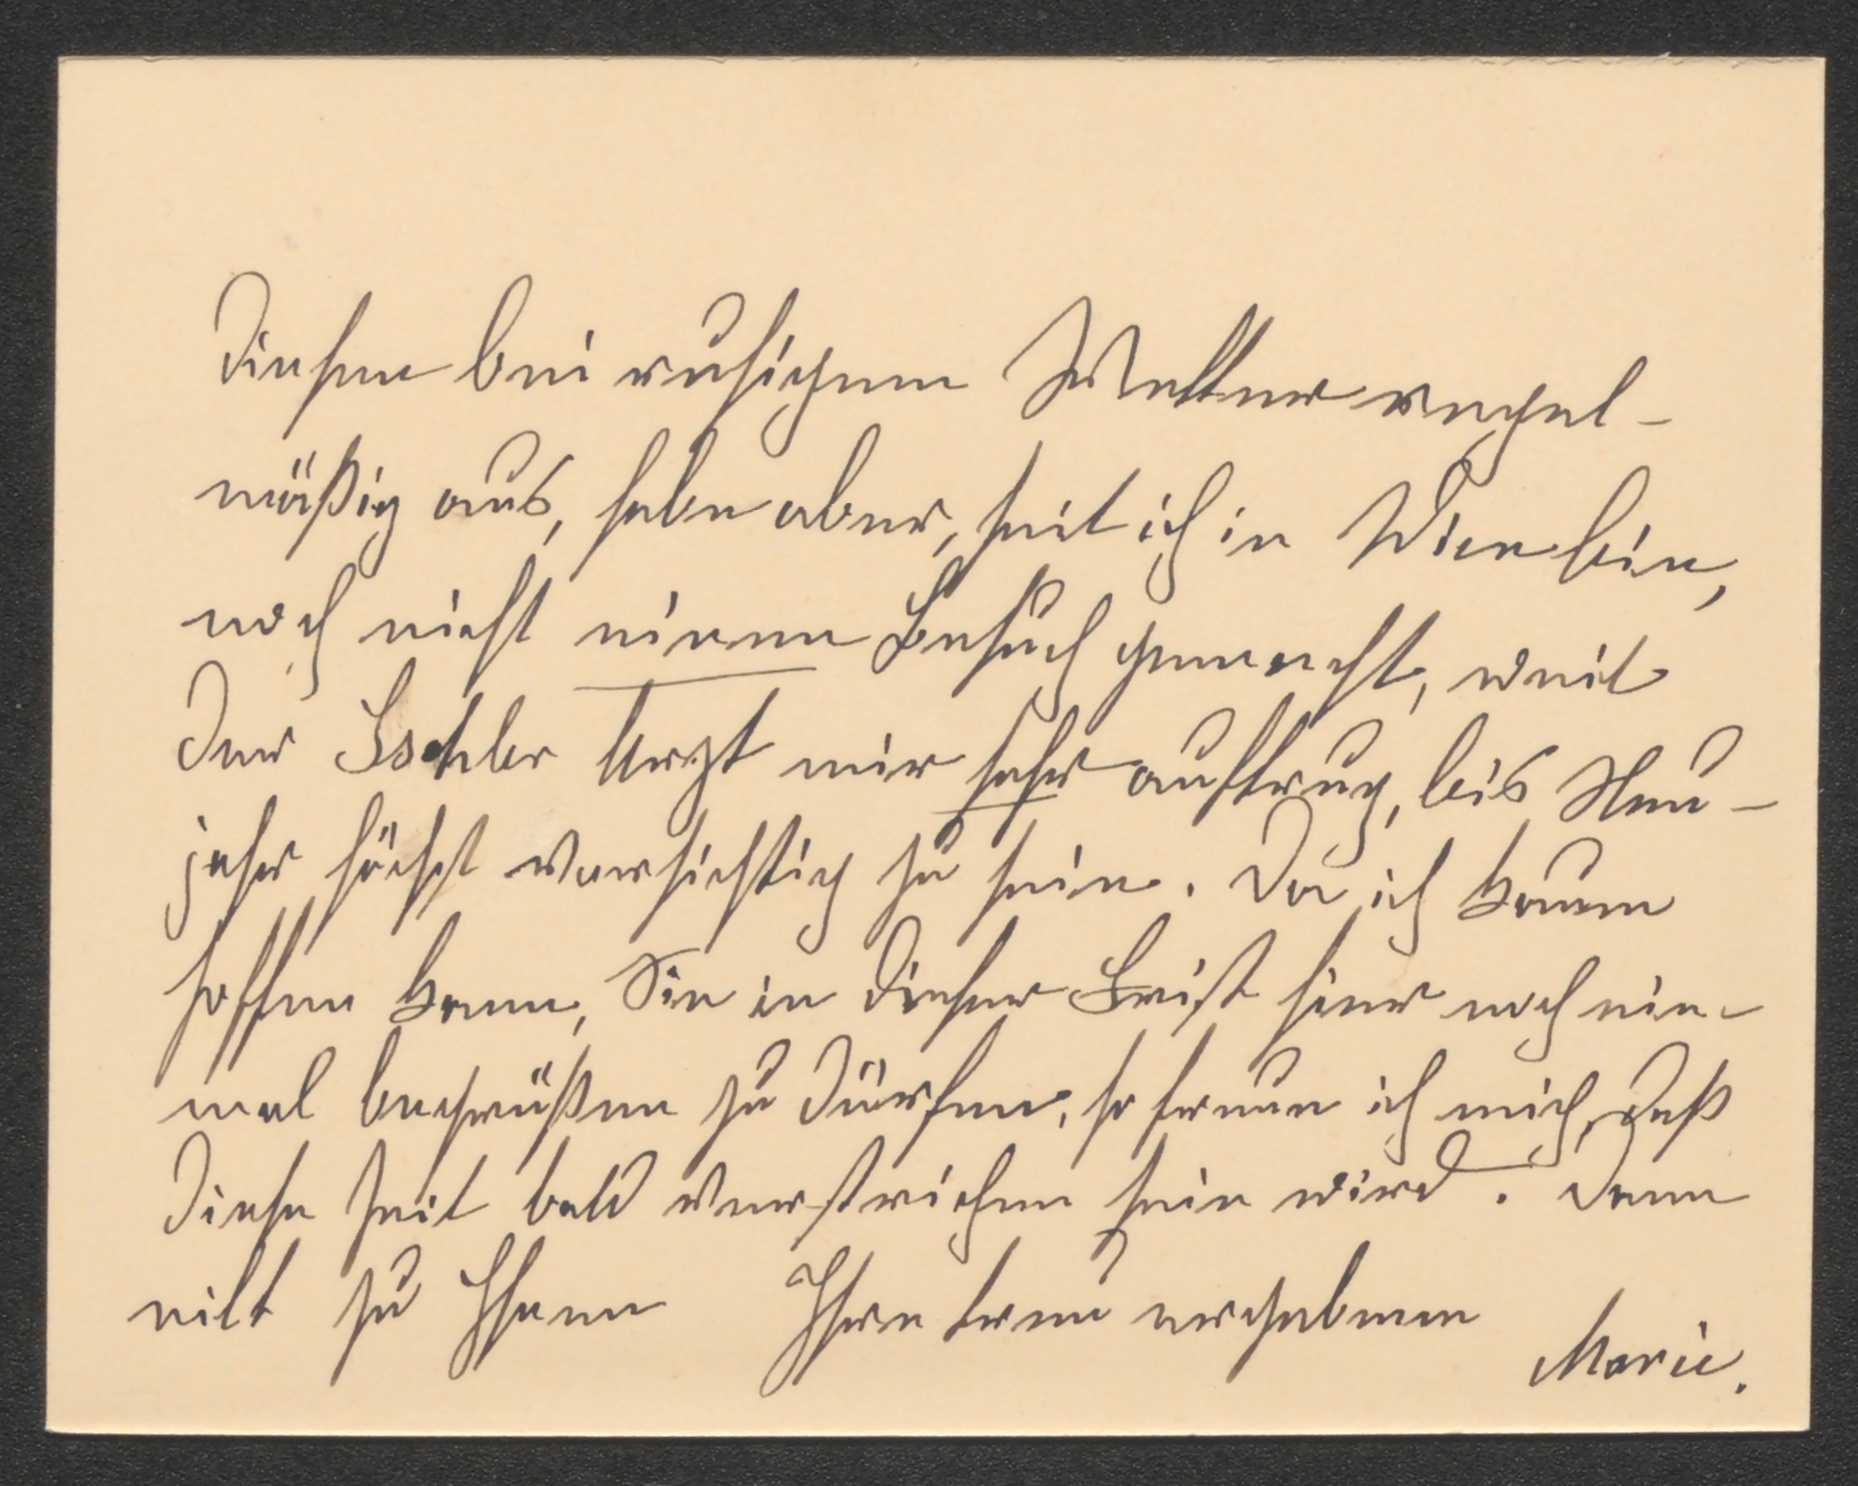 diesem bei ruhigem Wetter regel-
mäßig aus, habe aber, seit ich in Wien bin,
noch nicht einen Besuch gemacht, weil
der Ischler Arzt mir sehr auftrug, bis Neu-
jahr höchst vorsichtig zu sein. Da ich kaum
hoffen kann, Sie in dieser Frist hier noch ein-
mal begrüßen zu dürfen, so freue ich mich, daß
diese Zeit bald verstrichen sein wird. Dann
eilt zu Ihnen Ihre treu ergebene
Marie.